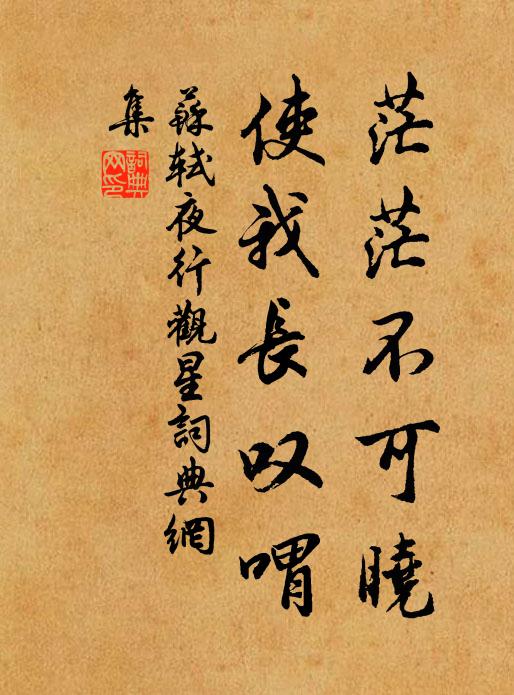 茫茫不可曉
使我長叹喟
蘇軾夜行觀星詞典網
集
詞典
网印